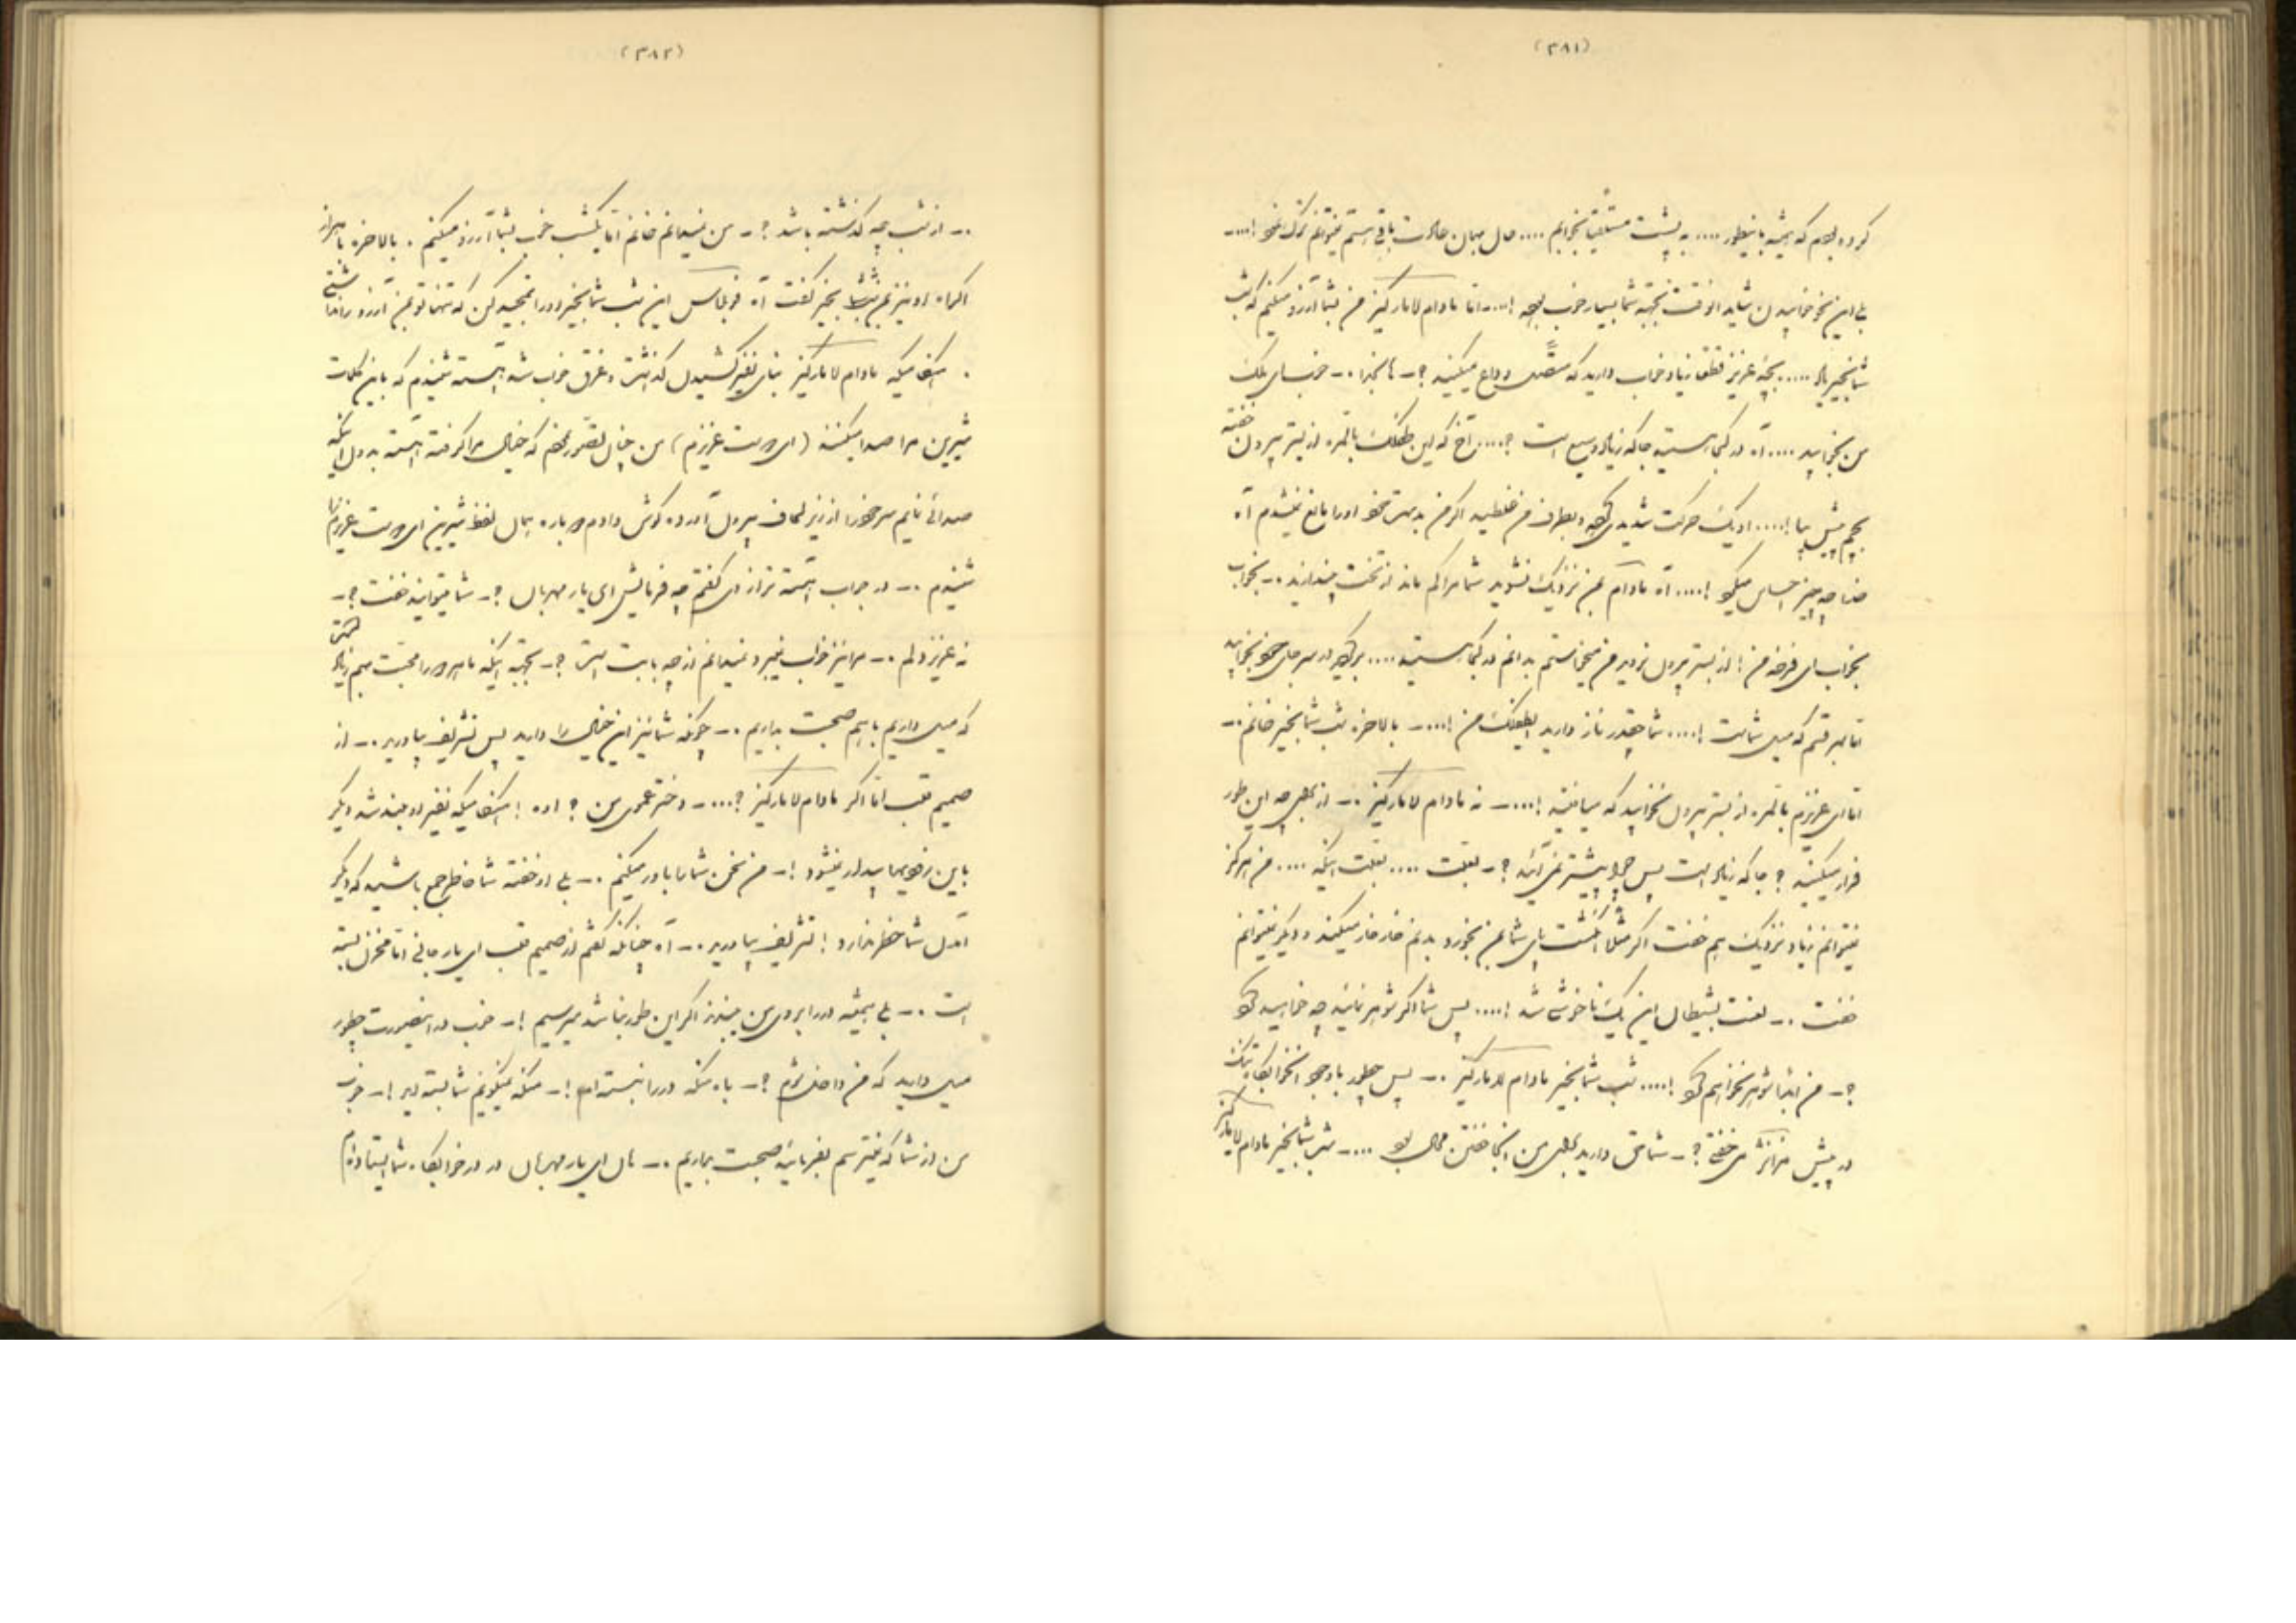 (۳۸۱)
کرده بودم که همیشه باینطور .... به پشت مستلقیا بخوابم .... حال بهمان عادت باقی هستم نمیتوانم ترک نمود !...-
بلی این نحو خوابیدن شاید آنوقت بجهة شما بسیار خوب بوده !...- اما مادام لامارکیز من بشما آرزو میکنم که شب
شما بخیر باد ..... بچه عزیز قطعا زیاد خواب دارید که وداع میکنید ؟- ها بخدا .- خوب ای ملک
من بخوابید .... آه در کجا هستید جا که زیاد وسیع است ؟.... آخ که این طفلک بالمره از بستر بیرون خفته
بچم پیش بیا !.... او یک حرکت شدیدی کرده و بطرف من غلطید اگر من بدست خود او را مانع نمیشدم آه
خدا چه چیز احساس میکرد !.... آه مادام بمن نزدیک نشوید شما مرا کم ماند از تخت بیندازید .- بخواب
بخواب ای من ! از بستر بیرون نروید من میخواستم بدانم در کجا هستید .... برگرد در سر جای خود بخوابید
اما سرقتم که میل شماست !.... شما چقدر ناز دارید ایطفلک من !...- بالاخره شب شما بخیر خانم .-
اما ای عزیزم بالمره از بستر بیرون نخوابید که میافتید !...- نه مادام لامارکیز .- از برای چه این طور
فرار میکنید ؟ جا که زیاد است پس چرا پیشتر نمی آئید ؟- بعلت .... بعلت اینکه .... من هرگز
نمیتوانم زیاد نزدیک بهم خفت اگر مثلا انگشت پای شما بمن بخورد بدنم خار خار میکند و دیگر نمیتوانم
خفت .- لعنت بشیطان این یک ناخوشی شد !.... پس شما اگر شوهر نمائید چه خواهید کرد
؟- من ابدا شوهر نخواهم کرد !.... شب شما بخیر مادام لامارکیز .- پس چطور با وجود
در پیش می خفتی ؟- شما حق دارید برای من اینجا خفتن محال بود ...- شب شما بخیر مادام لامارکیز
(۳۸۲)
.- از شب چه گذشته باشد ؟- من نمیدانم خانم اما یکشب خوب بشما آرزو میکنم . بالاخره با هزار
اکراه او نیز بمن شب بخیر گفت آه این شب شما بخیر او را که تنها تو بمن آرزو
. هنگامیکه مادام لامارکیز بنای نفیر کشیدن گذاشت و غرق خواب شد آهسته شنیدم که باین کلمات
شیرین مرا صدا میکنند (ای دوست عزیزم) من چنان تصور نمودم که خیال مرا گرفته آهسته بدون اینکه
صدائی نمایم سر خود را از زیر لحاف بیرون آورده گوش دادم دوباره همان لفظ شیرین ای دوست عزیزم را
شنیدم .- در جواب آهسته تر از وی گفتم چه فرمایش ای یار مهربان ؟- شما میتوانید خفت ؟-
نه عزیز دلم .- مرا نیز خواب نمیبرد نمیدانم از چه بابت است ؟- بجهة اینکه ما هر دو را محبت بهم زیاد
که میل داریم با هم صحبت بداریم .- چونکه شما نیز این خیال را دارید پس تشریف بیاورید .- از
صمیم قلب اما اگر مادام لامارکیز ؟...- دختر عموی من ؟ اوه ! هنگامیکه نفیر او بلند شد دیگر
باین زودیها بیدار نمیشود !- من سخن شما را باور میکنم .- بلی او خفته شما خاطر جمع باشید که دیگر
آمدن شما خطر ندارد ! تشریف بیاورید .- آه چنانکه گفتم از صمیم قلب ای یار جانی اما مخزن بسته
است .- بلی همیشه در را بروی من ببندند اگر این طور نباشد میرسیم !- خوب در اینصورت چطور
میل دارید که من داخل شوم ؟- باه منکه در را نبسته ام !- منکه نمیگویم شما بسته اید !- خوب
من از شما که نمیترسم بفرمائید صحبت بداریم .- هان ای یار مهربان در در خوابگاه شما ایستاده ام